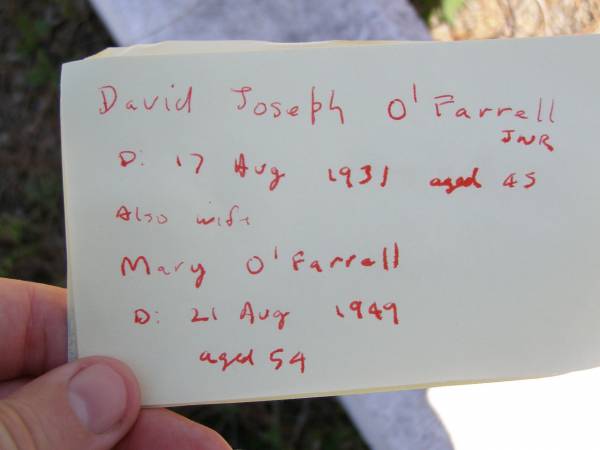 David Joseph O'Farrell
JNR
D: 17 Aug 1931 aged 45
Also wife
Mary O'Farrell
D: 21 Aug 1949
aged 54